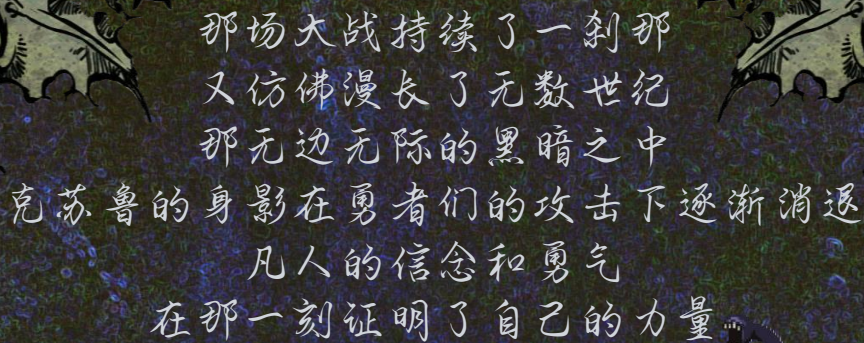 那场大战持续了一刹那
又仿佛漫长了无数世纪
那无边无际的黑暗之中
克苏鲁的身影在勇者们的攻击下逐渐消退
凡人的信念和勇气
在那一刻证明了自己的力量